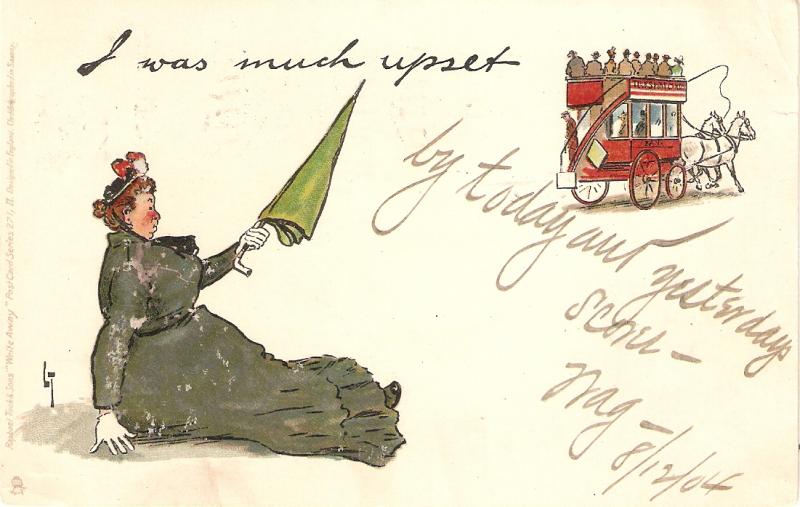 I was much upset
by today and yesterdays
score —
Wag —
8/12/04
Raphael Tuck & Sons "Write Away" Post Card Series 271, II. Designed in England. Chromographed in Saxony.